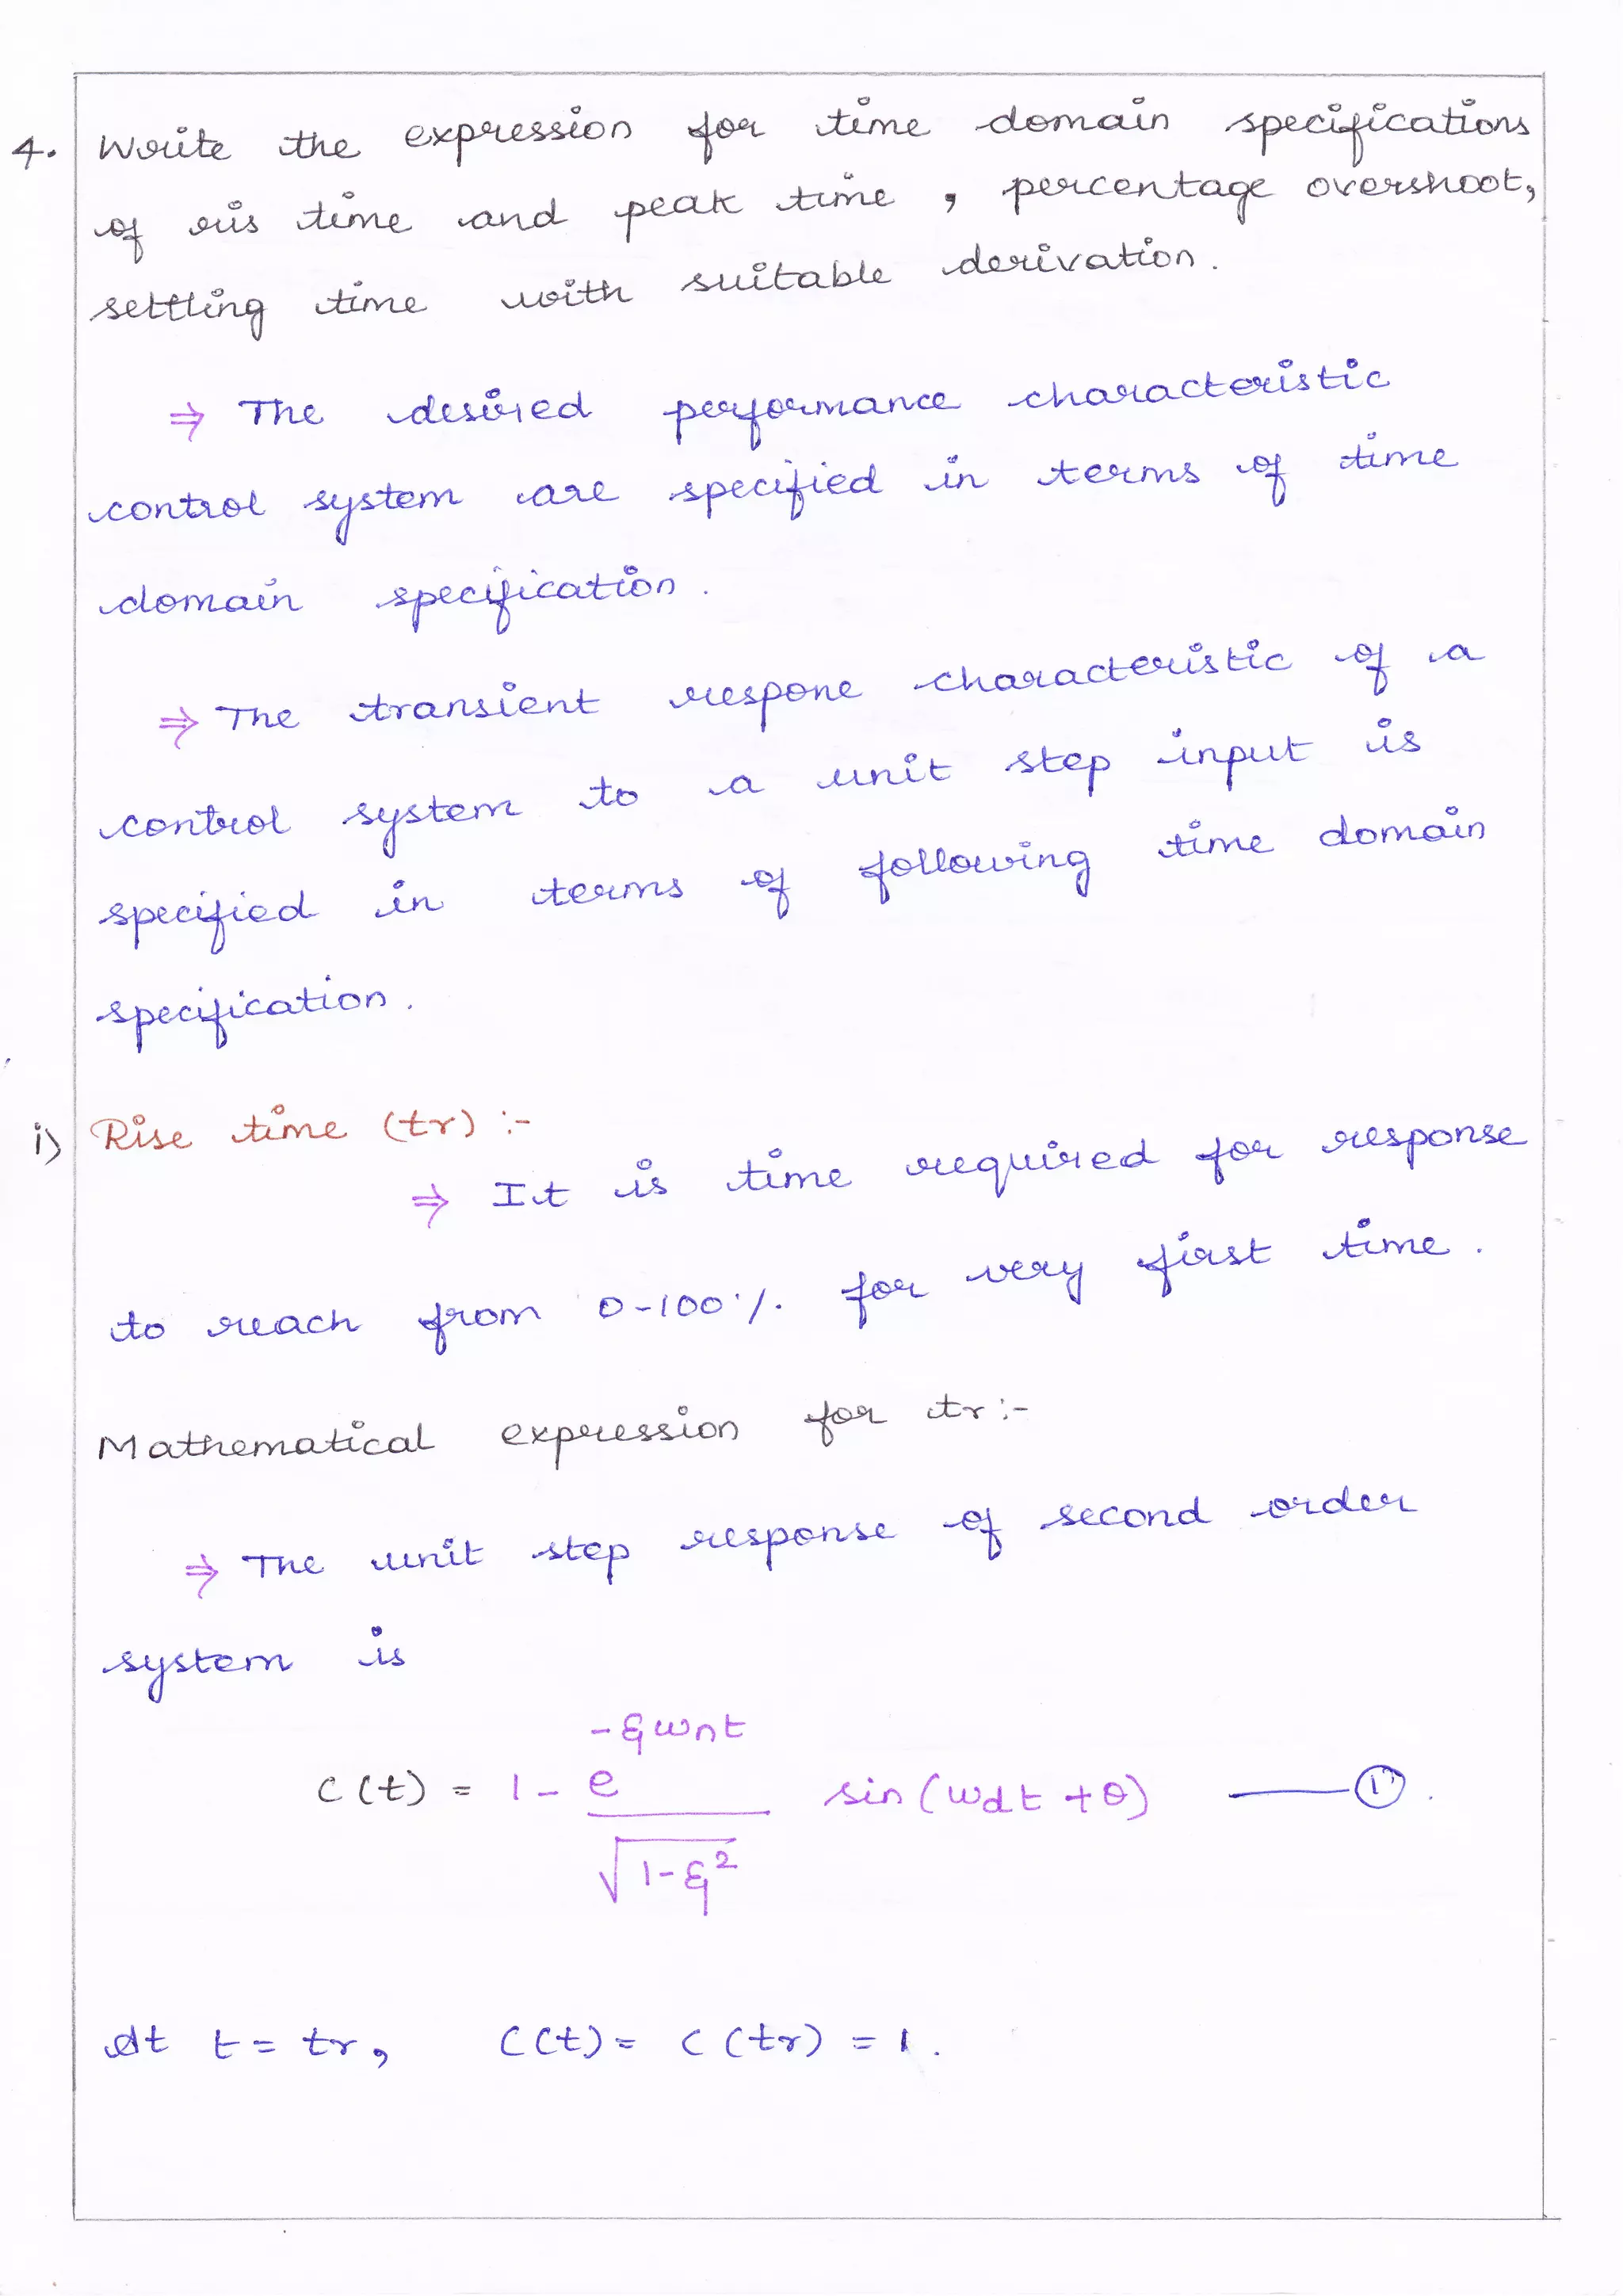 4. Write the expression for time domain specifications
of ris time and peak time , percentage overshoot,
settling time with suitable derivation.
⇒ The desired performance characteristic
control system are specified in terms of time
domain specification.
⇒ The transient respone characteristic of a
control system to a unit step input is
specified in terms of following time domain
specification.
i) Rise time (tr) :-
⇒ It is time required for response
to reach from 0-100 % for very first time.
Mathematical expression for tr :-
⇒ The unit step response of second order
system is
C(t) = 1 - e^(-ξωnt) / √(1-ξ²) sin(ωdt + θ) —— ①.
At t = tr, C(t) = C(tr) = 1.